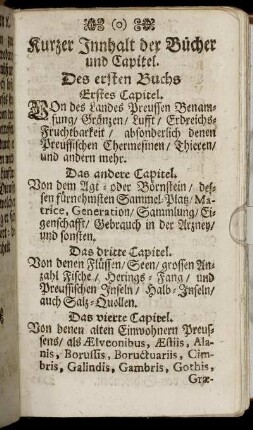 (o)
Kurzer Innhalt der Bücher
und Capitel.
Des ersten Buchs
Erstes Capitel.
VOn des Landes Preussen Benam-
sung/ Gränzen/ Lufft/ Erdreichs-
Fruchtbarkeit / absonderlich denen
Preussischen Chermesinen/ Thieren/
und andern mehr.
Das andere Capitel.
Von dem Agt- oder Börnstein/ des-
sen fürnehmsten Sammel-Platz/ Ma-
trice, Generation/ Sammlung/ Ei-
genschafft/ Gebrauch in der Arzney/
und sonsten.
Das dritte Capitel.
Von denen Flüssen/ Seen/ grossen An-
zahl Fische/ Herings-Fang/ und
Preussischen Inseln/ Halb-Inseln/
auch Salz-Quollen.
Das vierte Capitel.
Von denen alten Einwohnern Preus-
sens/ als Ælveonibus, Æstiis, Ala-
nis, Borussis, Boructuariis, Cim-
bris, Galindis, Gambris, Gothis,
Græ-